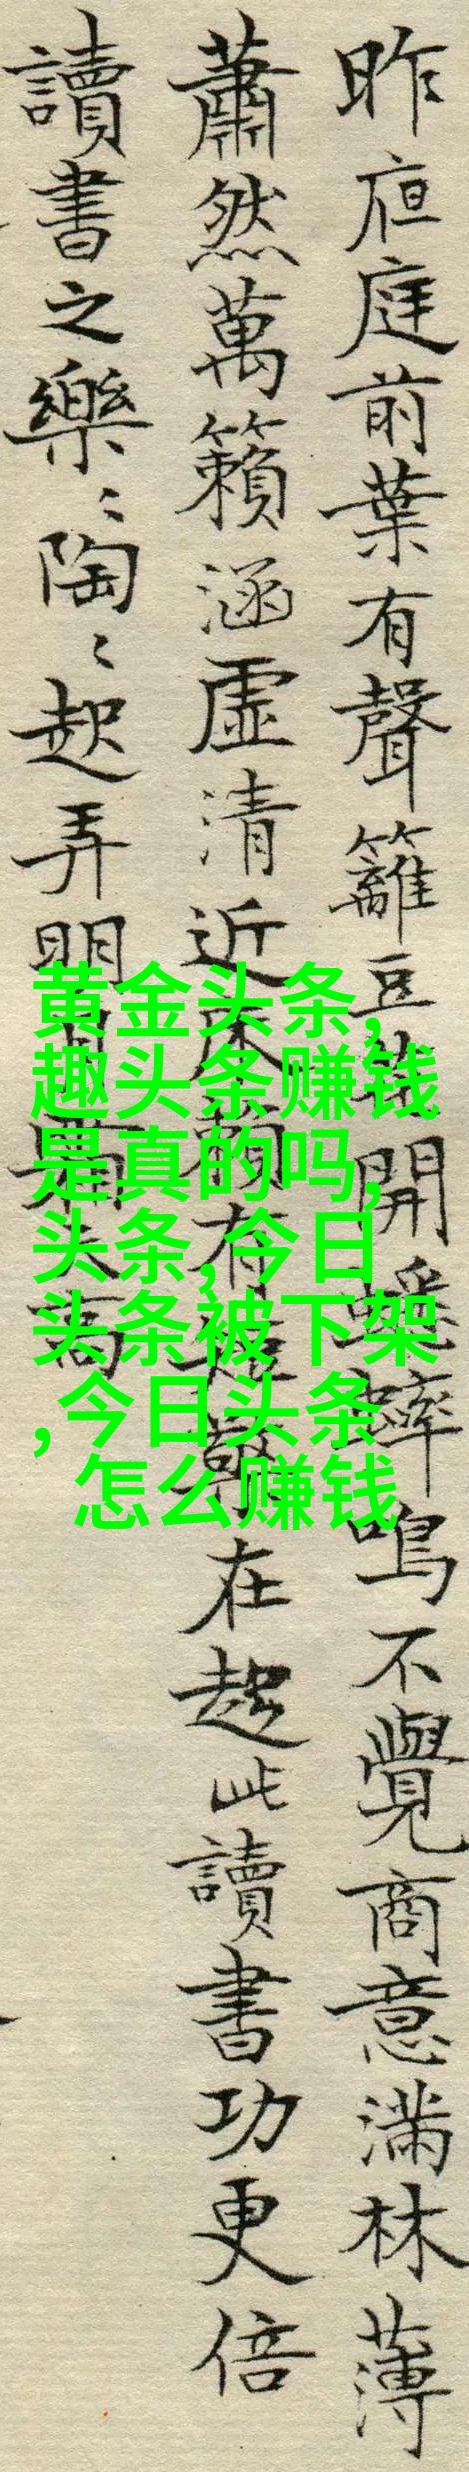 昨亱庭前葉有聲籬豆花開蟋蟀鳴不覺商意滿林薄
蕭然萬籟涵虛清近床賴有短檠在趂此讀書功更倍
讀書之樂〻陶〻起弄明月霜天高
黄金头条,
趣头条赚钱
是真的吗,
头条,今日
头条被下架
,今日头条
怎么赚钱